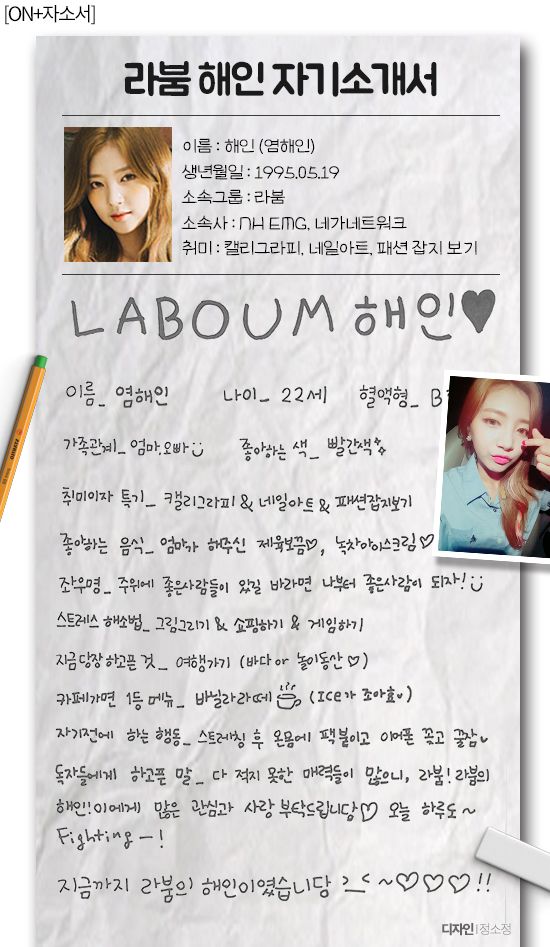 [ON+자소서]
라붐 해인 자기소개서
이름 : 해인 (염해인)
생년월일 : 1995.05.19
소속그룹 : 라붐
소속사 : NH EMG, 네가네트워크
취미 : 캘리그라피, 네일아트, 패션 잡지 보기
LABOUM 해인♥
이름_ 염해인 나이_ 22세 혈액형_ B
가족관계_ 엄마,오빠 좋아하는 색_ 빨간색
취미이자 특기_ 캘리그라피 & 네일아트 & 패션잡지보기
좋아하는 음식_ 엄마가 해주신 제육보끔♡, 녹차아이스크림♡
좌우명_ 주위에 좋은사람들이 있길 바라면 나부터 좋은사람이 되자!
스트레스 해소법_ 그림그리기 & 쇼핑하기 & 게임하기
지금 당장 하고픈 것_ 여행가기 (바다 or 놀이동산♡)
카페가면 1등 메뉴_ 바닐라라떼 (Ice가 조아효)
자기전에 하는 행동_ 스트레칭 후 온몸에 팩붙이고 이어폰 꽂고 꿀잠
독자들에게 하고픈 말_ 다 적지 못한 매력들이 많으니, 라붐! 라붐의
해인! 이에게 많은 관심과 사랑 부탁드립니당♡ 오늘 하루도~
Fighting—!
지금까지 라붐의 해인이였습니당 >_< ~♡♡♡!!
디자인 | 정소정